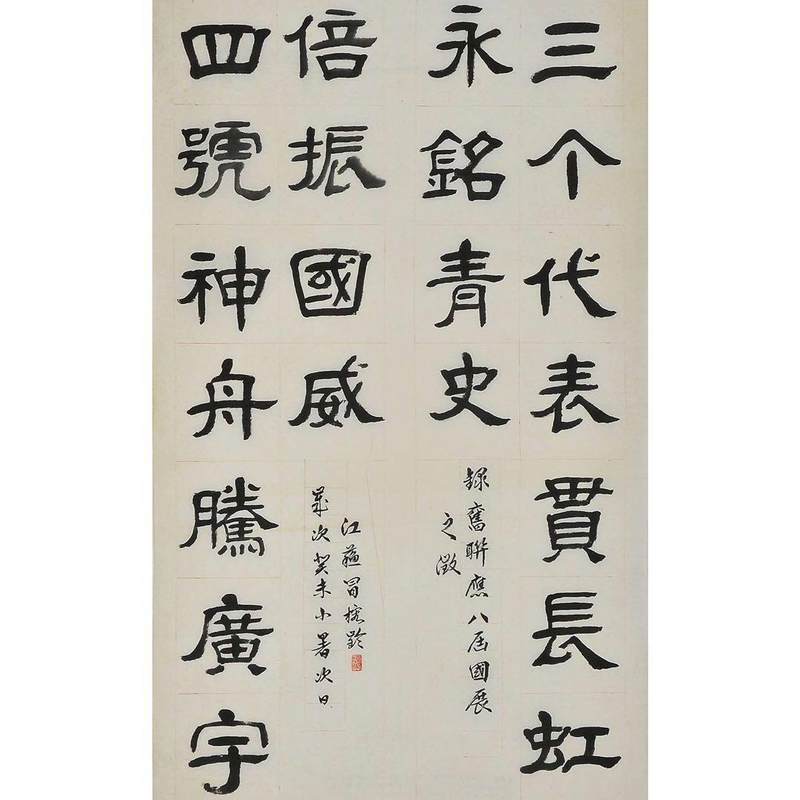 三个代表貫長虹
永銘青史
録舊聯應八屆國展
之徵
四號神舟騰廣宇
倍振國威
歲次癸未小暑次日
江蘇冒